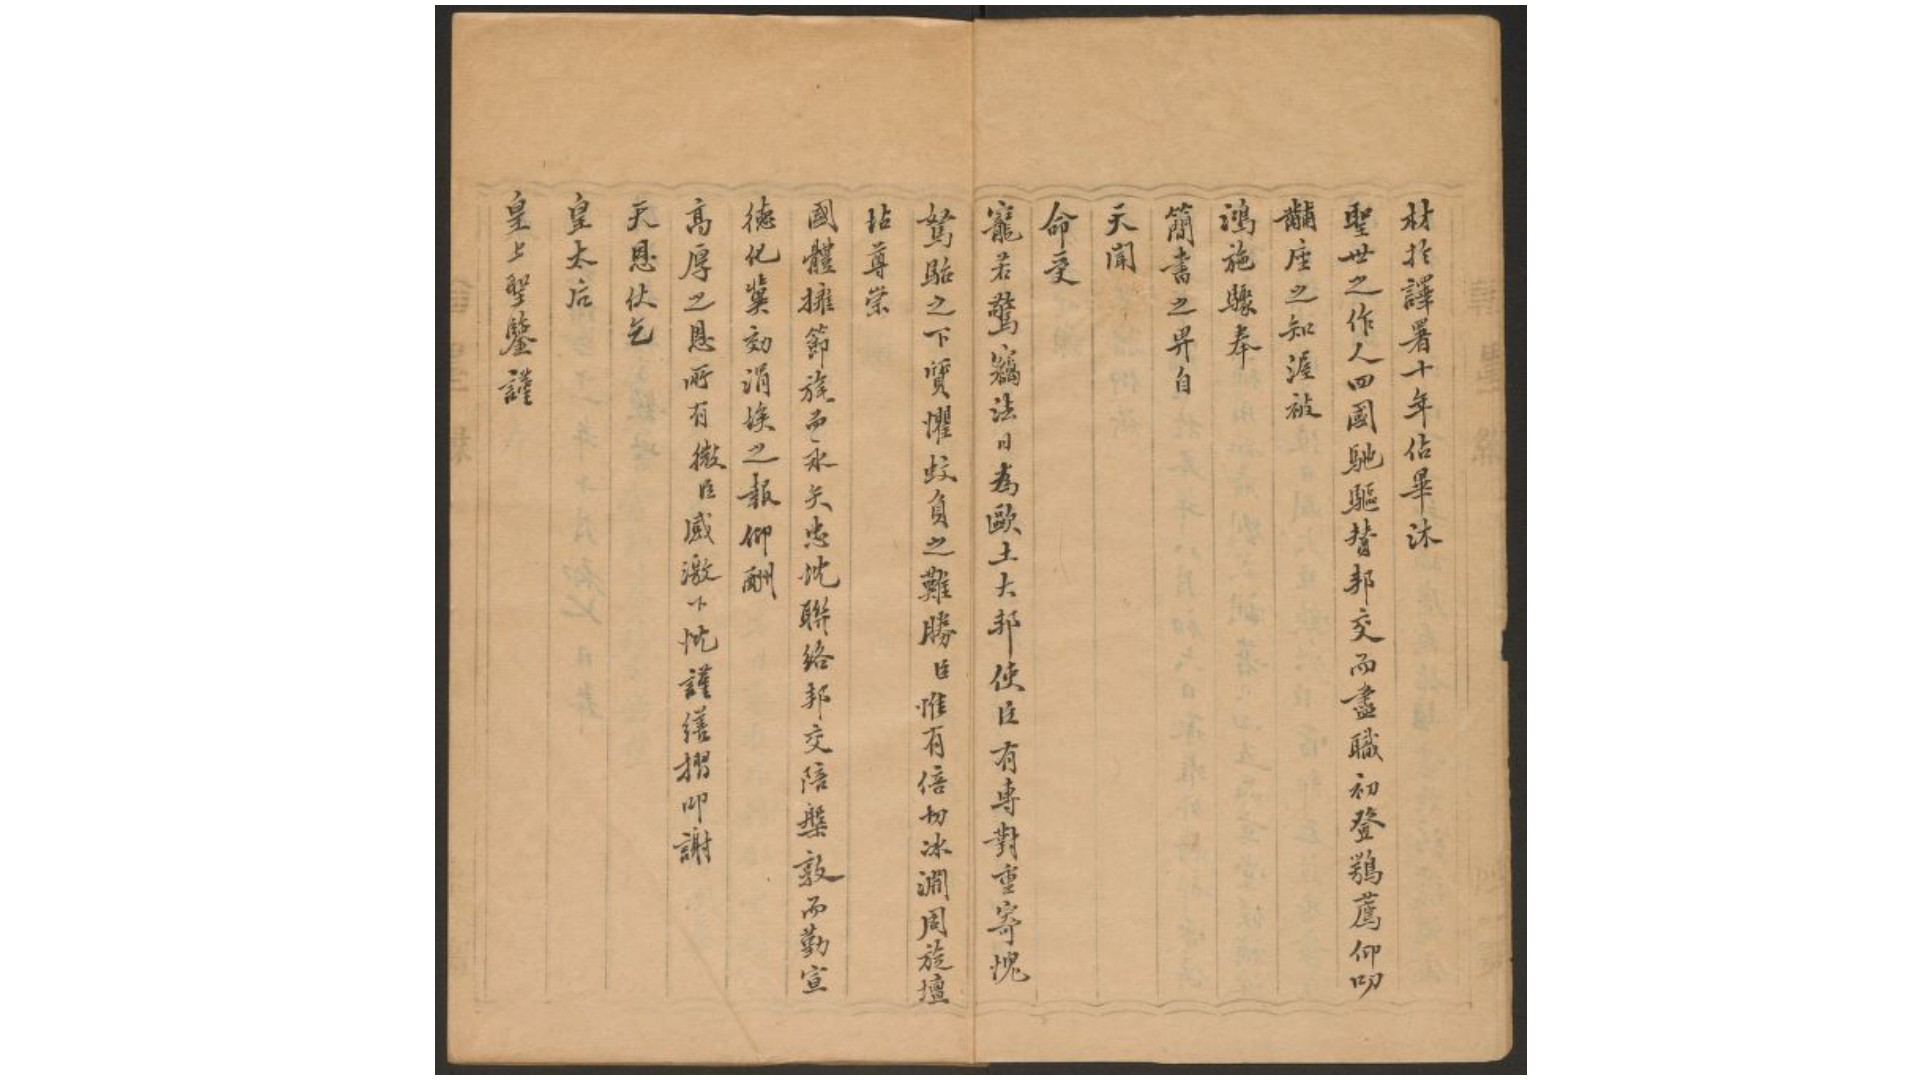 材於譯署十年佔畢沐
聖世之作人四國馳驅贊邦交而盡職初登鶚薦仰叨
黼座之知渥被
鴻施驟奉
簡書之畀自
天聞
命受
寵若驚竊法日為歐土大邦使臣有專對重寄愧
駑駘之下質懼蚊負之難勝臣惟有倍切冰淵周旋壇
坫尊崇
國體擁節旄而永矢忠忱聯絡邦交陪槃敦而勤宣
德化冀効涓埃之報仰酬
高厚之恩所有微臣感激下忱謹繕摺叩謝
天恩伏乞
皇太后
皇上聖鑒謹